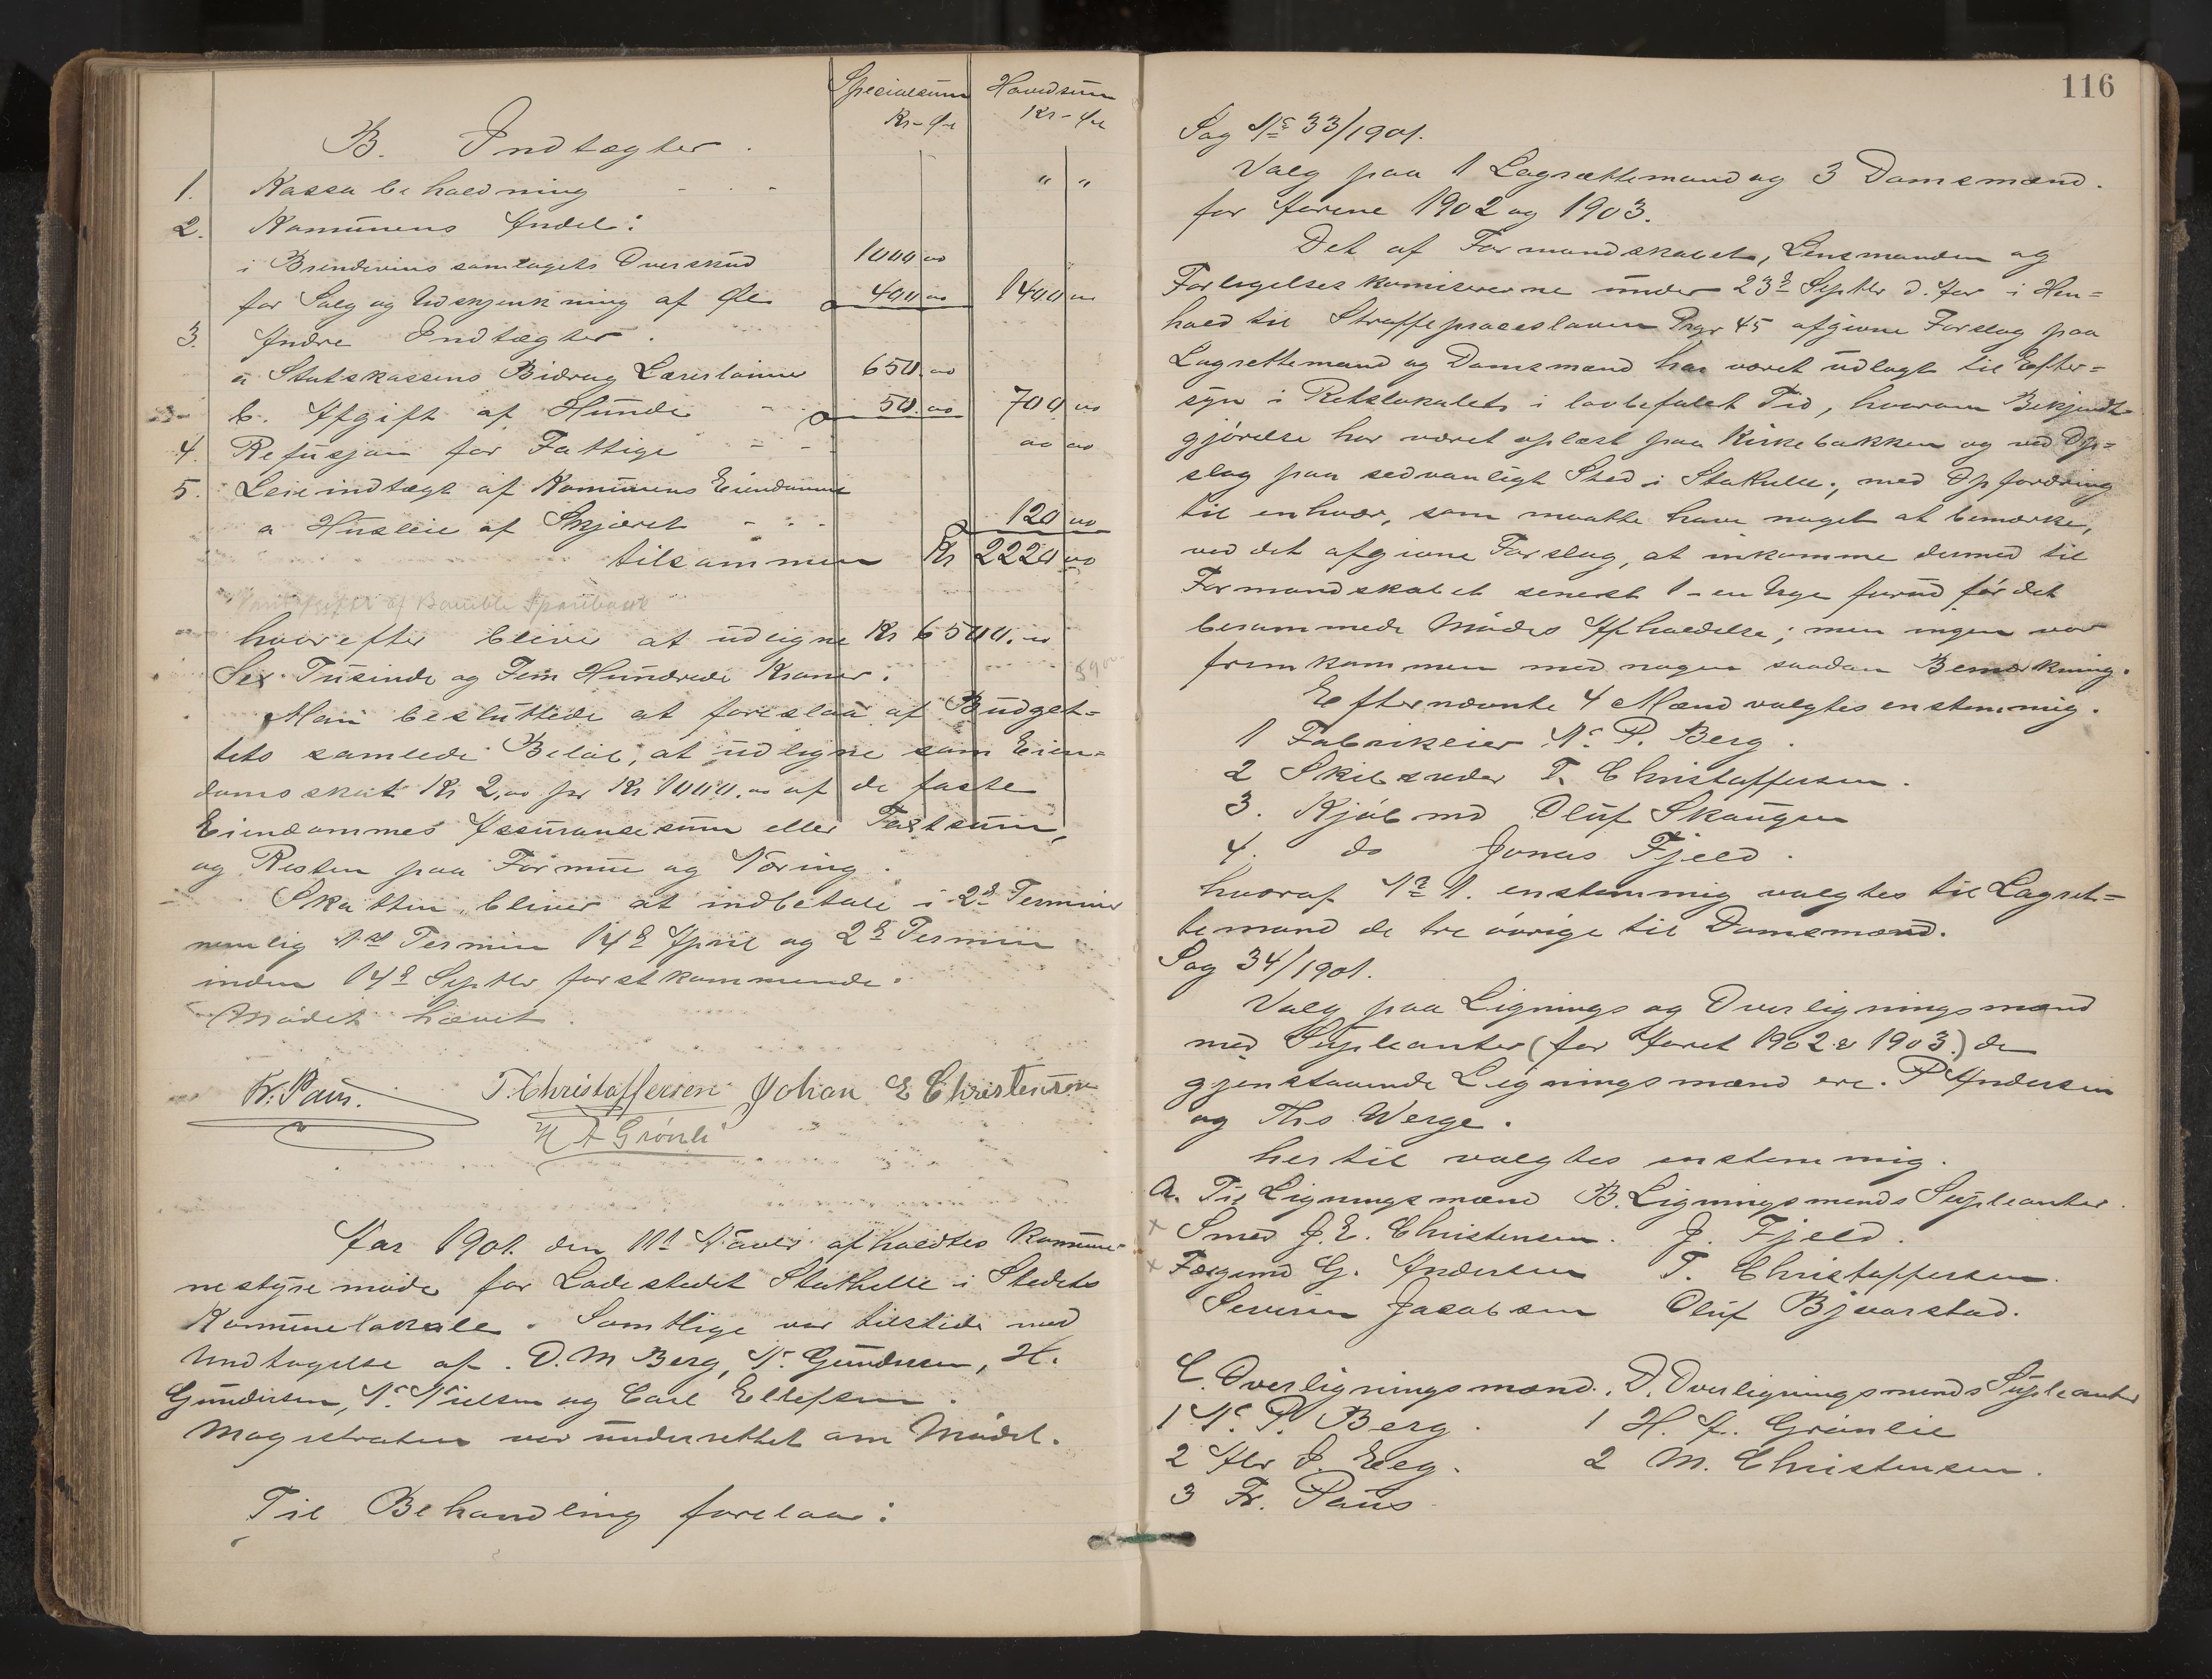 Specialsum Hovedsum
Kr - Øre Kr - Øre
B. Indtægter.
1. Kassabeholdning - - - " "
2. Komunens Andel:
i Brendevinssamlagets Overskud 1000 00
for Salg og Udskjenkning af Øl 400 00 1400 00
3. Andre Indtægter.
a Statskassens Bidrag Lærerlønner 650.00
b. Afgift af Hunde - - 50.00 700 00
4. Refusjon for Fattige - - 00 00
5. Leieindtægt af Komunens Eiendomme
a Husleie af Skjæret - - - 120 00
tilsammen Kr 2220 00
af Bamble Sparebank
hvorefter bliver at udligne Kr 6500.00
Sex Tusinde og Fem Hundrede Kroner.
Man besluttede at foreslaa af Budget=
tets samlede Beløb, at udligne som Eien=
domsskat Kr 2,00 pr Kr 1000.00 af de faste
Eiendommes Assuransesum eller Taxtsum,
og Resten paa Formue og Næring.
Skatten bliver at indbetale i 2de Terminer
nemlig 1ste Termin 14de April og 2den Termin
inden 14de Septbr førstkommende.
Mødet hævet.
Fr. Paus. T. Christoffersen Johan E Christensen
H A Grønli
Aar 1901 den 11te Novbr afholdtes Kommu-
nestyremøde for Ladestedet Stathelle i Stedets
Komunelokale. Samtlige var tilstede med
Undtagelse af. D. M Berg, N. Gundersen, H.
Gundersen, N. Nielsen og Carl Ellefsen.
Magistraten var underrettet om Mødet.
Til Behandling forelaa:
116
Sag No 33/1901.
Valg paa 1 Lagrettemand og 3 Domsmænd.
for Aarene 1902 og 1903.
Det af Formandskabet, Lensmanden og
Forligelseskomisererne under 23de Septbr d. Aar i Hen=
hold til Straffeproceslovens Prgr 45 afgivne Forslag paa
Lagrettemand og Domsmænd har været udlagt til Efter=
syn i Retslokalet i lovbefalet Tid, hvorom Bekjendt-
gjørelse har været oplæst paa Kirkebakken og ved Op=
slag paa sedvanligt Sted i Stathelle, med Opfordring
til enhver, som maatte have noget at bemærke,
ved det afgivne Forslag, at inkomme dermed til
Formandskabet senest 1-en Uge forud før det
berammede Mødes Afholdelse; men ingen var
fremkommen med nogen saadan Bemærkning.
Efternævnte 4 Mænd valgtes enstemmig.
1 Fabrikeier N. P. Berg.
2 Skibsreder T. Christoffersen.
3. Kjøbmd Oluf Skaugen
4. do Jonas Fjeld.
hvoraf No 1. enstemmig valgtes til Lagret=
temand de tre øvrige til Domsmænd.
Sag 34/1901.
Valg paa Lignings og Overligningsmænd
med Supleanter (for Aaret 1902 & 1903.) de
gjenstaaende Ligningsmænd ere. P Andersen
og Ths Werge.
hertil valgtes enstemmig.
A. Til Ligningsmænd B. Ligningsmænds Supleanter.
x Smed J. E. Christensen. J. Fjeld.
x Færgemd G. Andersen T. Christoffersen.
Severin Jacobsen Oluf Bjvarstad.
C. Overligningsmænd. D. Overligningsmænds Supleanter
1 N. P. Berg. 1 H. A. Grønlie
2 Abr J. Eeg. 2 M. Christensen.
3 Fr. Paus